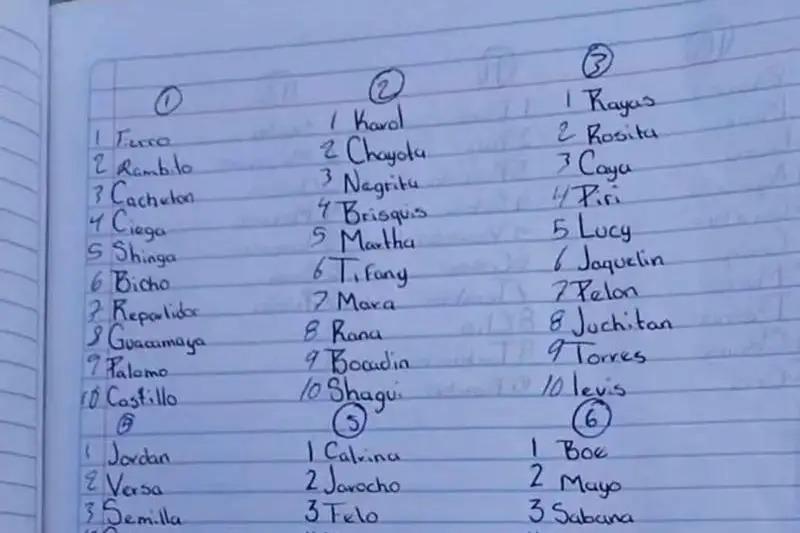 ①
1 Fierro
2 Rambito
3 Cacheton
4 Ciega
5 Shinga
6 Bicho
7 Repartidor
8 Guacamaya
9 Palomo
10 Castillo
②
1 Karol
2 Chayota
3 Negrita
4 Brisquis
5 Martha
6 Tifany
7 Mara
8 Rana
9 Bocadin
10 Shagui
③
1 Rayas
2 Rosita
3 Caya
4 Piri
5 Lucy
6 Jaquelin
7 Pelon
8 Juchitan
9 Torres
10 levis
④
1 Jordan
2 Versa
3 Semilla
⑤
1 Calvina
2 Jarocho
3 Telo
⑥
1 Boe
2 Mayo
3 Sabana